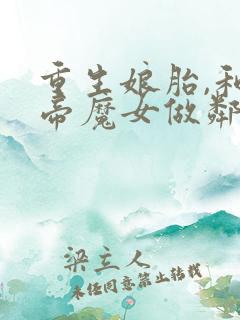 重生娘胎,和
帝魔女做鄰
梁立人
未经同意禁止转载